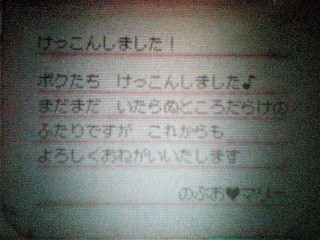 けっこんしました！
ボクたち　けっこんしました♪
まだまだ　いたらぬところだらけの
ふたりですが　これからも
よろしくおねがいいたします
のぶお♥マリー